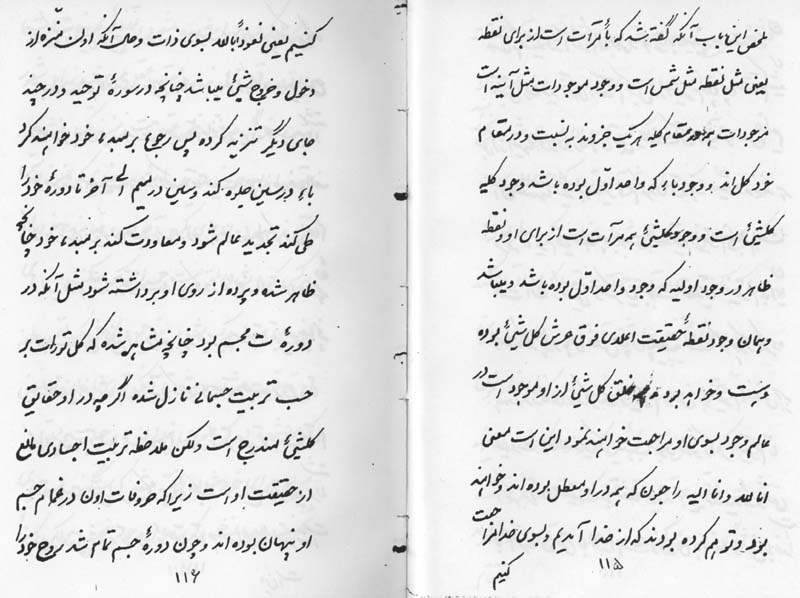 ملخص این باب آنکه گفته شد که باء مرآت است از برای نقطه
یعنی مثل نقطه مثل شمس است و وجود موجودات مثل آینه است
موجودات بمقام کلیه هر یک جزوند به نسبت و در مقام
خود کل اند و وجود باء که واحد اوّل بوده باشد وجود کلیه
کلشیئ است و وجود کلشیئ همه مرآت است از برای او و نقطه
ظاهر در وجود اولیه که وجود واحد اوّل بوده باشد و یباشد
و همان وجود نقطهٔ حقیقت اعلای فوق عرش کل شیئ بوده
و هست و خواهد بود و خلق کل شیئ از او موجود است در
عالم وجود بسوی او مراجعت خواهند نمود این است معنی
انا لله و انا الیه راجعون که همه در او معطل بوده اند و خواهند
بود و توهم کرده بودند که از خدا آمدیم و بسوی خدا مراجعت
کنیم
۱۱۵
کنیم یعنی نعوذ بالله بسوی ذات و حال آنکه اون منزه از
دخول و خروج شیئ میباشد چنانچه در سورهٔ توحید و در چند
جای دیگر تنزیه کرده پس رجوع بر مبدء خود خواهند کرد
باء در سین جلوه کند و سین در میم الی آخر تا دورهٔ خود را
طی کند تجدید عالم شود و معاودت کند بر مبدء خود چنانچه
ظاهر شده و پرده از روی او برداشته شود مثل آنکه در
دورهٔ ت مجسم بود چنانچه مشاهد شده که کل تورات بر
حسب تربیت جسمانی نازل شده اگر چه در او حقایق
کلشیئ مندرج است ولکن ملاحظه تربیت اجسادی مانع
از حقیقت او است زیرا که حروفات اون در غمام جسم
او پنهان بوده اند و چون دورهٔ جسم تمام شد روح خود را
۱۱۶